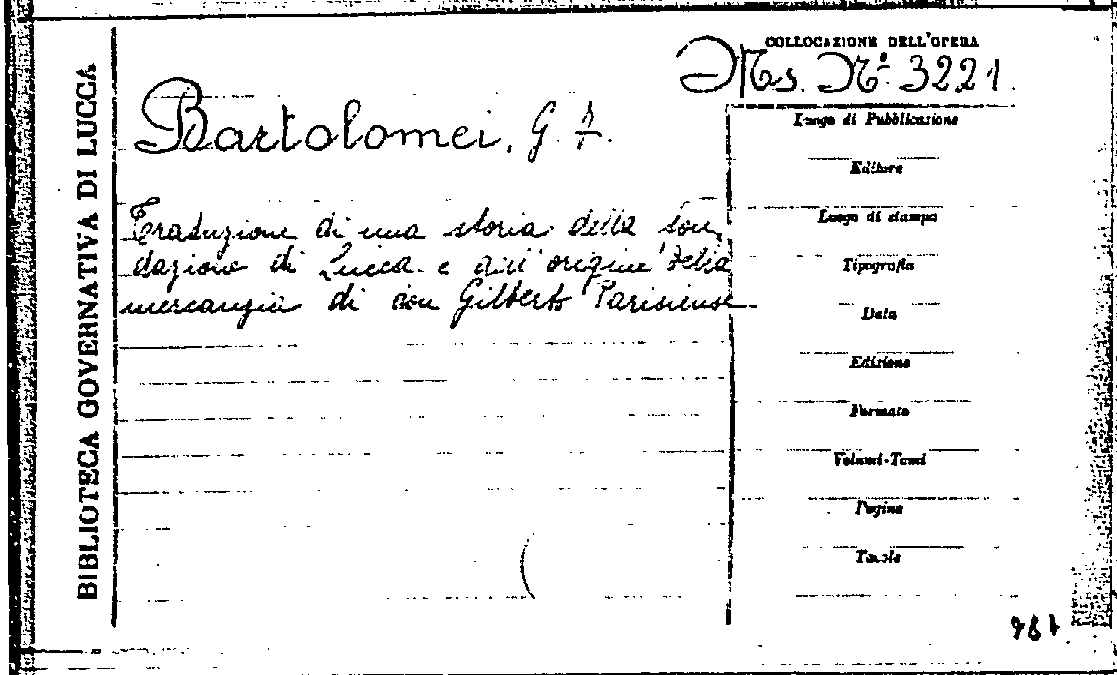 BIBLIOTECA GOVERNATIVA DI LUCCA
COLLOCAZIONE DELL'OPERA
Ms. Nº 3221.
Bartolomei, G. F.
Traduzione di una storia della fon-
dazione di Lucca e dell'origine della
mercanzia di don Gilberto Parisiense
Luogo di Pubblicazione
Editore
Luogo di stampa
Tipografia
Data
Edizione
Formato
Volumi-Tomi
Pagine
Tavole